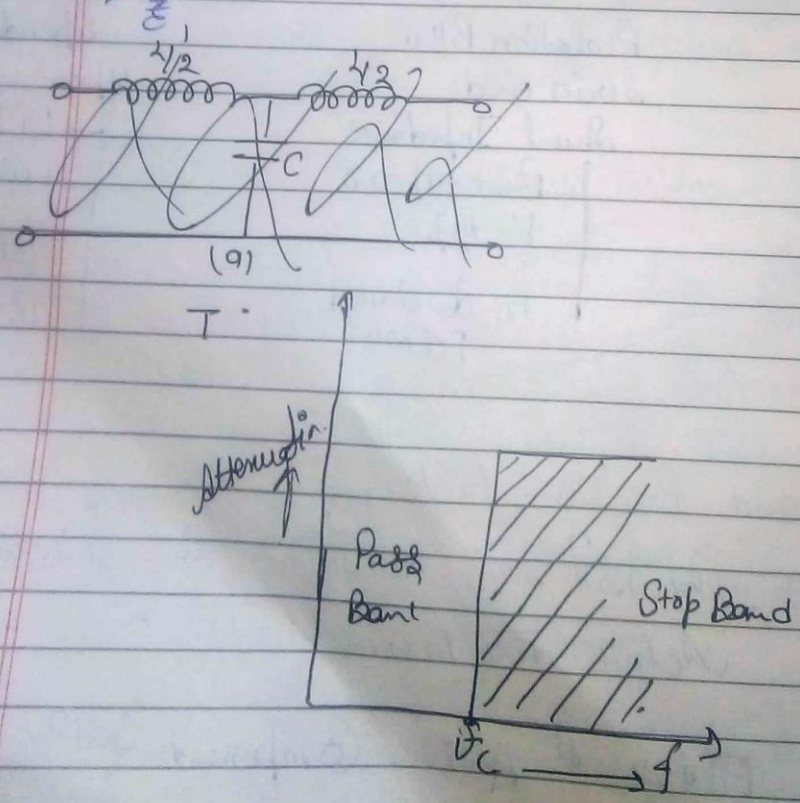 L/2 L/2
C
(a)
T
Attenuatin
Pass
Band
Stop Band
fc
f